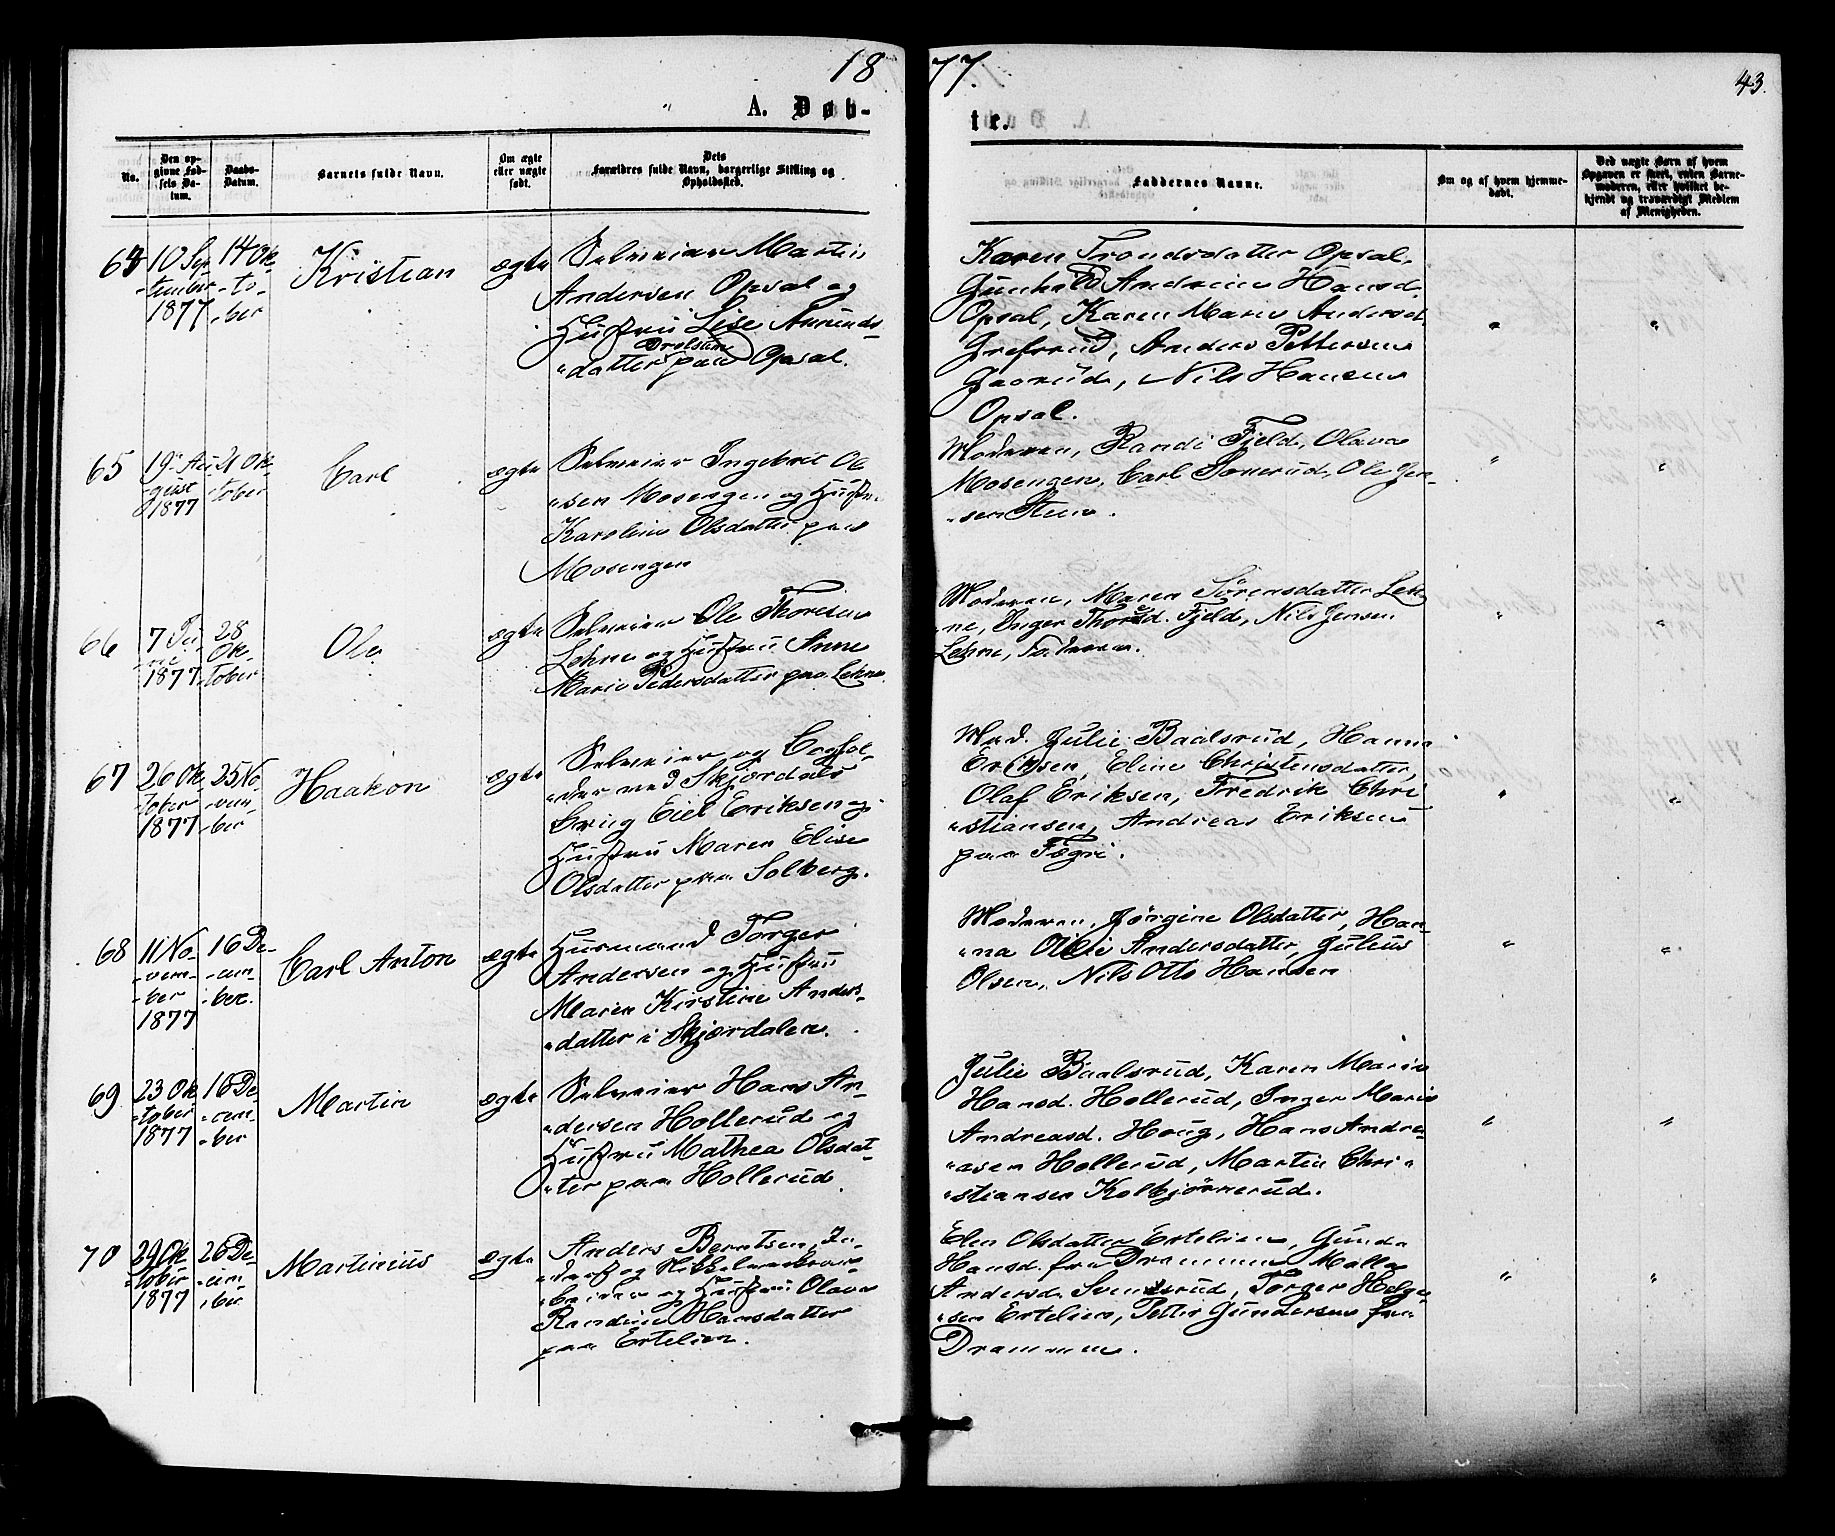 1877.
43.
A. Døb-
te.
No.
Den op-
givne Fød-
sels Da-
tum.
Daabs-
Datum.
Barnets fulde Navn.
Om ægte
eller uægte
født.
Dets
Forældres fulde Navn, borgerlige Stilling og
Opholdssted.
Faddernes Navne.
Om og af hvem hjemme-
døbt.
Ved uægte Børn af hvem
Opgaven er skeet, enten Barne-
moderen, eller hvilket be-
kjendt og troværdigt Medlem
af Menigheden.
64
10 Sep-
-tember
1877
14 Ok-
-to-
-ber
Kristian
ægte
Selveier Martin
Andersen Opsal og
Hustru Lise Amunds-
"datter paa Opsal.
Karen Trondsdatter Opsal,
Gunhild Andrine Hansd.
Opsal, Karen Marie Andersd.
Grefsrud, Anders Pettersen
Gaarud, Nils Hansen
Opsal.
"
"
65
19 Au-
gust
1877
21 Ok-
-tober
Carl
ægte
Selveier Ingebret Ol-
"sen Mosengen og Hustru
Karoline Olsdatter paa
Mosengen
Moderen, Randi Fjeld, Olava
Mosengen, Carl Sonerud, Ole Jen-
"sen Steen.
"
"
66
7 Ju-
-ne
1877
28
Ok-
-tober
Ole
ægte
Selveier Ole Thoresen
Lehne og Hustru Anne
Marie Pedersdatter paa Lehne.
Moderen, Maren Sørensdatter Leh-
ne, Inger Thorsd. Fjeld, Nils Jensen
Lehne, Faderen.
"
"
67
26 Ok-
tober
1877
25 No-
-vem-
-ber
Haakon
ægte
Selveier og Boghol-
"der ved Skjærdals
Brug Eiel Eriksen og
Hustru Maren Elise
Olsdatter paa Solberg.
Mad. Julie Baalsrud, Hanna
Eriksen, Eline Christensdatter,
Olaf Eriksen, Fredrik Chri
"stiansen, Andreas Eriksen
paa Fægri.
"
"
68
11 No-
-vem-
-ber
1877
16 De-
-cem-
-ber.
Carl Anton
ægte
Husmand Torger
Andersen og Hustru
Maren Kirstine Anders-
"datter i Skjærdalen.
Moderen, Jørgine Olsdatter, Han-
"na Olea Andersdatter, Julius
Olsen, Nils Otto Hansen
"
"
69
23 Ok-
-tober
1877
16 De-
-cem-
-ber
Martin
ægte
Selveier Hans An-
"dersen Hollerud og
Hustru Mathea Olsdat-
"ter paa Hollerud.
Julie Baalsrud, Karen Marie
Hansd. Hollerud, Inger Marie
Andreasd. Houg, Hans Andre-
"asen Hollerud, Martin Chri-
"stiansen Kolbjørnerud.
"
"
70
29 Ok-
-tober
1877
26 De-
-cem-
-ber
Martinius
ægte
Anders Berntsen, In-
"derst og Nikkelverksar-
"beider og Hustru Olava
Randine Hansdatter
paa Ertelien.
Elen Olsdatter Ertelien, Gunda
Hansd. fra Drammen Malla
Andersd. Svensrud, Torger Helge-
"sen Ertelien, Petter Gundersen fra
Drammen.
"
"